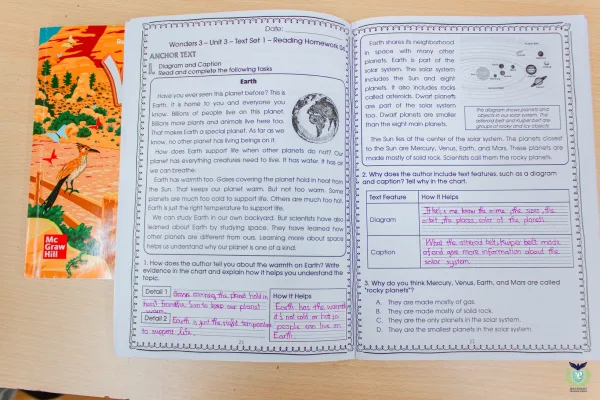 Mc
Graw
Hill
Date:
Wonders 3 – Unit 3 – Text Set 1 – Reading Homework
ANCHOR TEXT
I. Diagram and Caption
Read and complete the following tasks
Earth
Have you ever seen this planet before? This is
Earth. It is home to you and everyone you
know. Billions of people live on this planet.
Billions more plants and animals live here too.
That makes Earth a special planet. As far as we
know, no other planet has living beings on it.
How does Earth support life when other planets do not? Our
planet has everything creatures need to live. It has water. It has air
we can breathe.
Earth has warmth too. Gases covering the planet hold in heat from
the Sun. That keeps our planet warm. But not too warm. Some
planets are much too cold to support life. Others are much too hot.
Earth is just the right temperature to support life.
We can study Earth in our own backyard. But scientists have also
learned about Earth by studying space. They have learned how
other planets are different from ours. Learning more about space
helps us understand why our planet is one of a kind.
1. How does the author tell you about the warmth on Earth? Write
evidence in the chart and explain how it helps you understand the
topic.
Detail 1 Gases covering the planet hold in
heat from the Sun to keep our planet
warm
Detail 2 Earth is just the right temperature
to support life
How it Helps
Earth has the warmth
it's not cold or hot so
people can live on
Earth
Earth shares its neighborhood
in space with many other
planets. Earth is part of the
solar system. The solar system
includes the Sun and eight
planets. It also includes rocks
called asteroids. Dwarf planets
are part of the solar system
too. Dwarf planets are smaller
than the eight main planets.
The diagram shows planets and
objects in our solar system. The
asteroid belt and Kuiper belt are
groups of rocky and icy objects.
The Sun lies at the center of the solar system. The planets closest
to the Sun are Mercury, Venus, Earth, and Mars. These planets are
made mostly of solid rock. Scientists call them the rocky planets.
2. Why does the author include text features, such as a diagram
and caption? Tell why in the chart.
Text Feature How It Helps
Diagram
me know the name, the size, the
orbit, the places, color of the planets
Caption
What the asteroid belt, Kuiper belt made
of and give more information about the
solar system
3. Why do you think Mercury, Venus, Earth, and Mars are called
"rocky planets"?
A. They are made mostly of gas.
B. They are made mostly of solid rock.
C. They are the only planets in the solar system.
D. They are the smallest planets in the solar system.